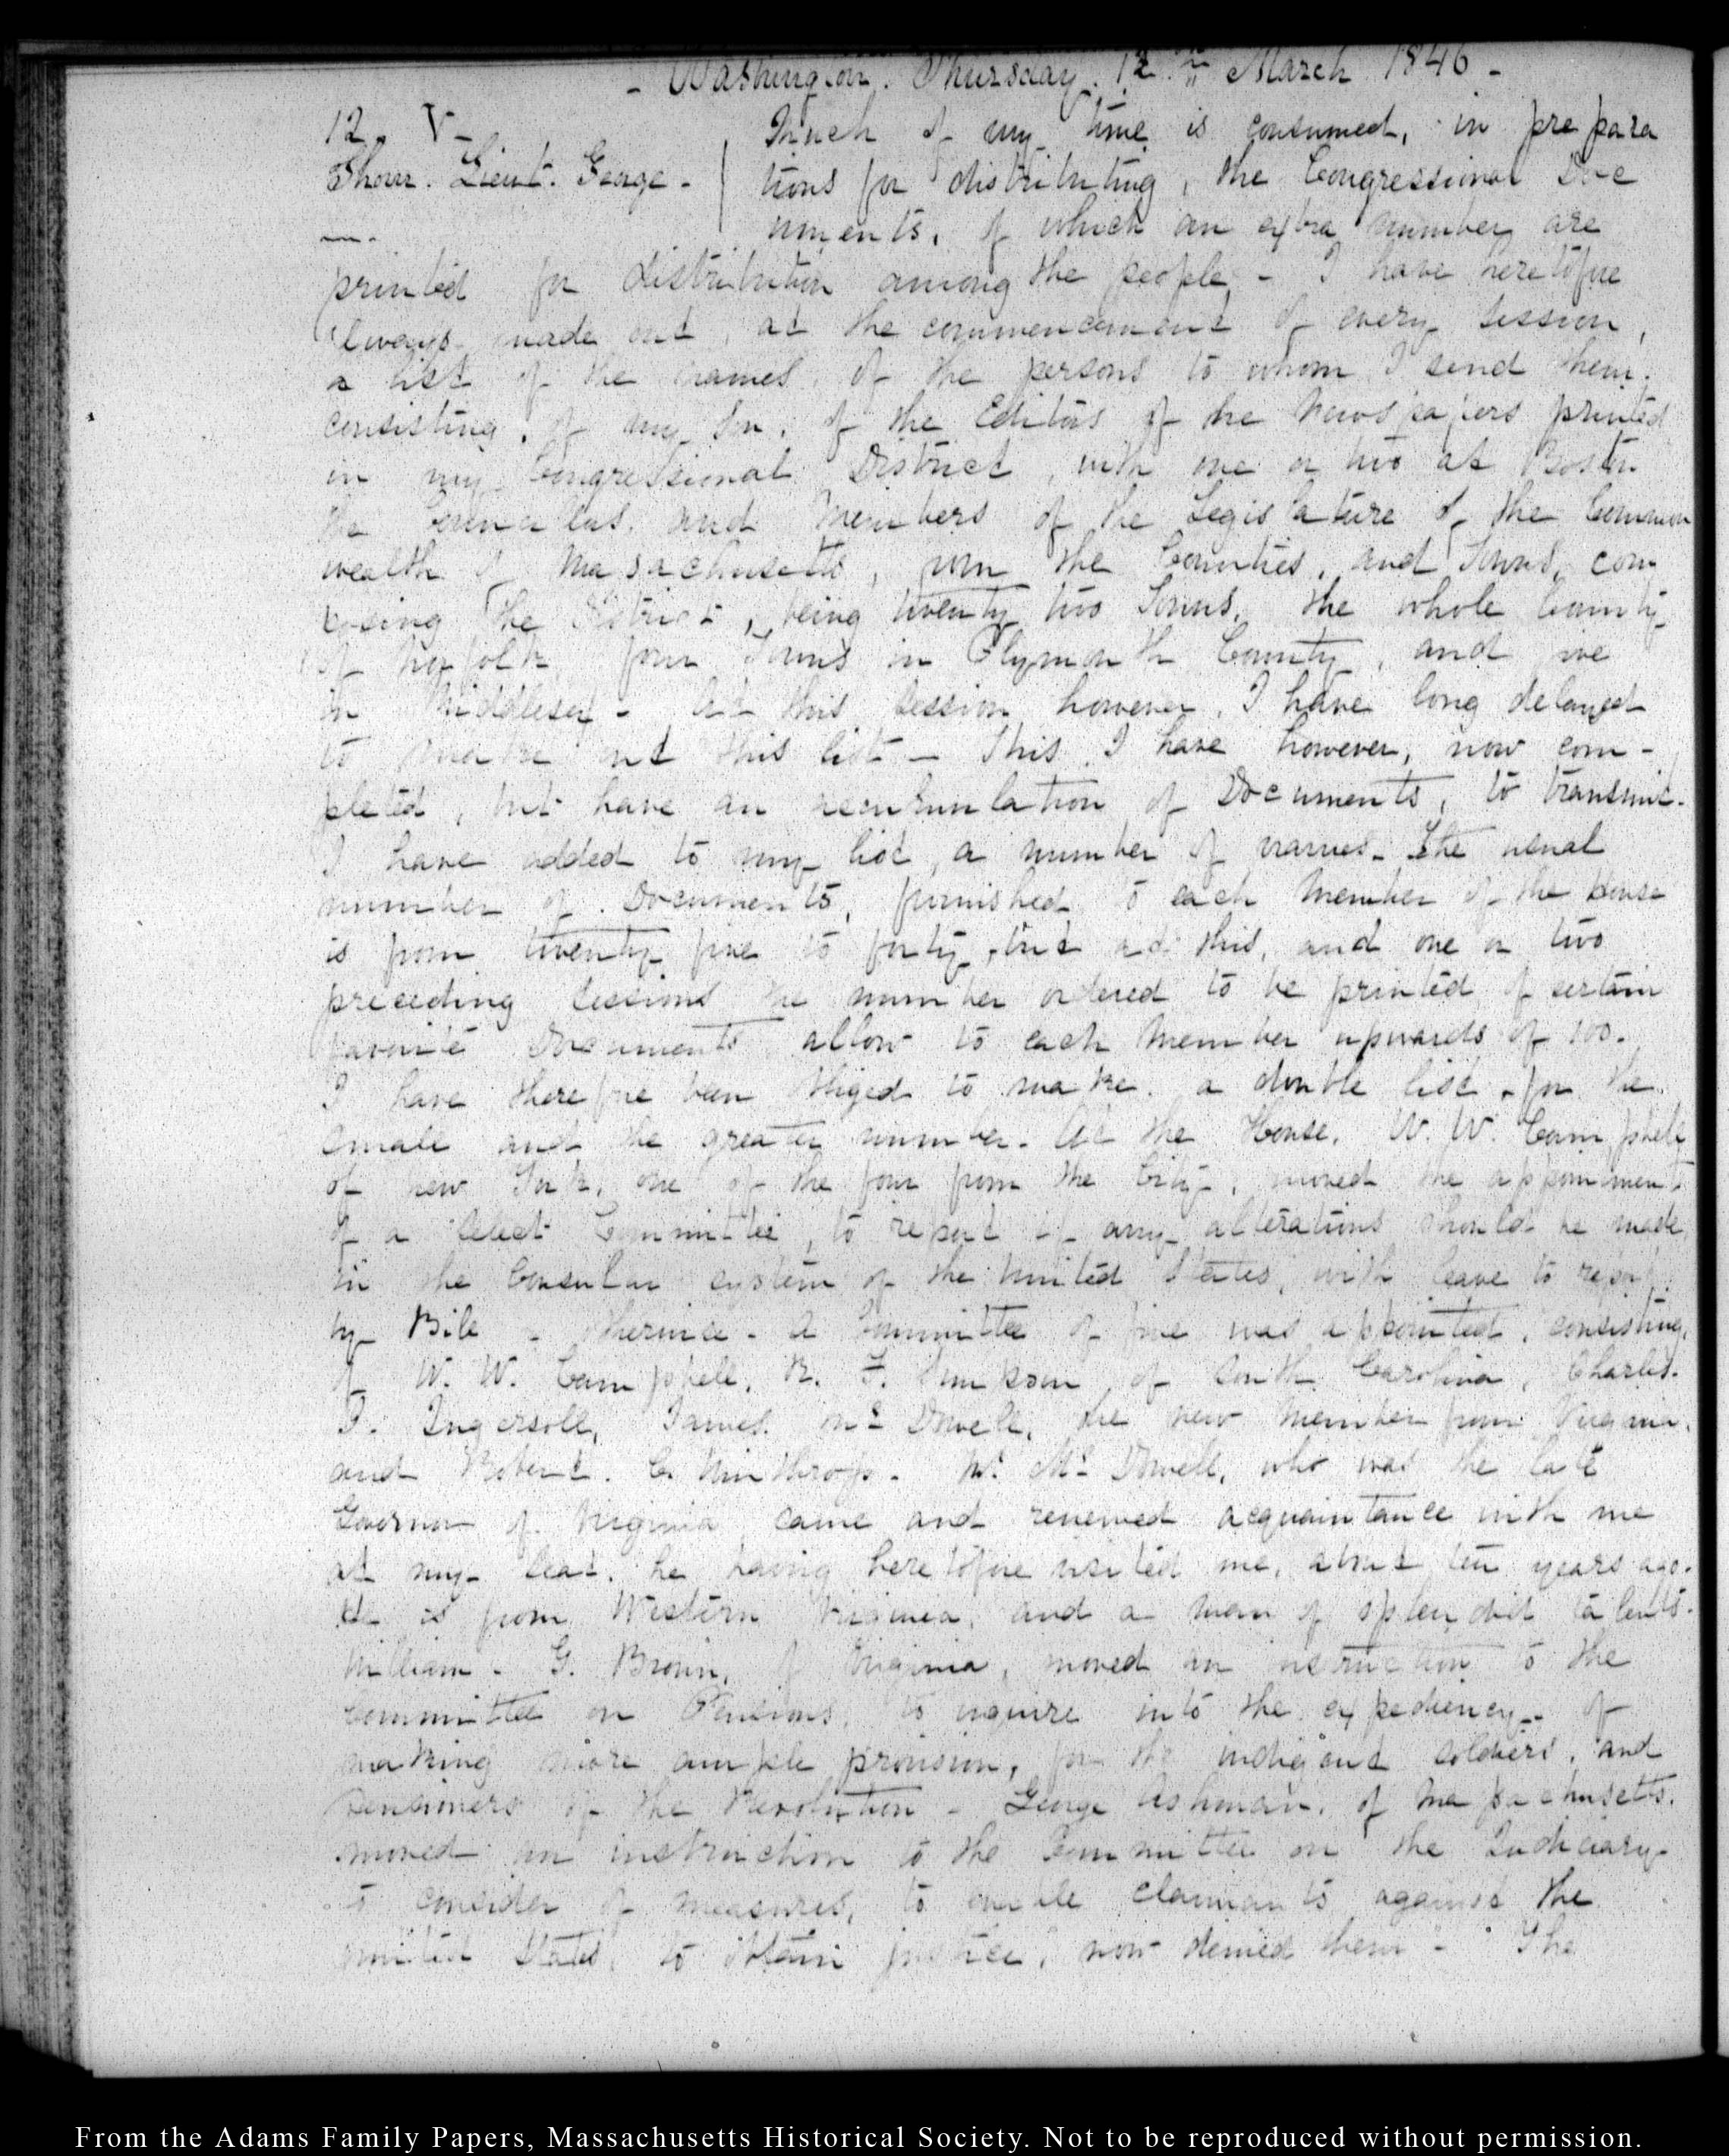 - Washington. Thursday. 12th March 1846 -
12. V-
Thom. Lieut. George -
Much of my time is consumed, in prepara
tions for distributing, the Congressional Doc
uments, of which an extra number are
printed for distribution among the people - I have heretofore
always made out, at the commencement of every session,
a list of the names, of the persons to whom I send them.
consisting, of my Son, of the Editors of the Newspapers printed
in my Congressional District, with one or two at Boston
the Senators, and Members of the Legislature of the Common
wealth of Massachusetts, from the Counties, and Towns, com
posing the District, being twenty two Towns, the whole County
of Norfolk, four Towns in Plymouth County, and five
in Middlesex - At this session however, I have long delayed
to make out this list - This I have however, now com-
pleted, but have an accumulation of Documents, to transmit.
I have added to my list, a number of names. The usual
number of Documents, furnished to each Member of the House
is from twenty five to forty, but at this, and one or two
preceding sessions the number ordered to be printed of certain
favorite Documents allow to each Member upwards of 100.
I have therefore been obliged to make a double list, for the
small and the greater number. At the House, W. W. Campbell
of New York, one of the four from the City, moved the appointment
of a select Committee, to report if any alterations should be made
in the Consular system of the United States, with leave to report
by Bill or otherwise - A Committee of five was appointed, consisting,
of W. W. Campbell, R. F. Simpson, of South Carolina, Charles.
J. Ingersoll, James. McDowell, the new member from Virginia,
and Robert. C. Winthrop. Mr. McDowell, who was the late
Governor of Virginia came and renewed acquaintance with me
at my seat, he having heretofore visited me, about ten years ago.
He is from Western Virginia, and a man of splendid talents.
William. G. Brown, of Virginia, moved an instruction to the
Committee on Pensions, to inquire into the expediency of
making more ample provision, for the indigent soldiers, and
Pensioners of the Revolution - George Ashmun, of Massachusetts.
moved an instruction to the Committee on the Judiciary
to consider of measures, to enable claimants against the
United States, to obtain justice, now denied them - The
From the Adams Family Papers, Massachusetts Historical Society. Not to be reproduced without permission.